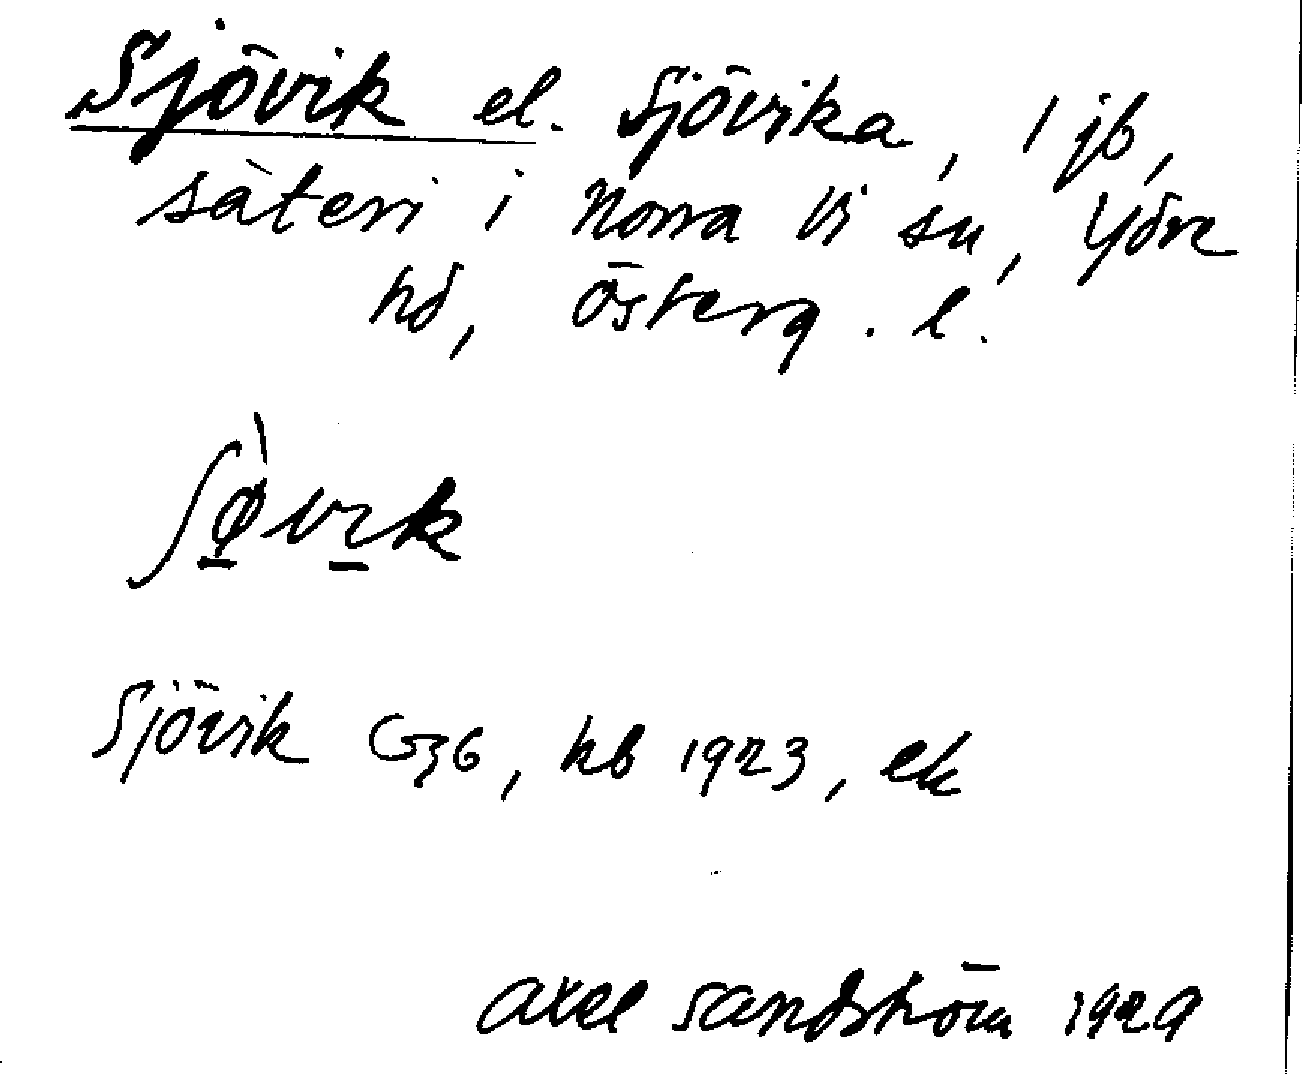 Sjövik el. Sjövika, 1 jb,
säteri i Norra Vi sn, Ydre
hd, Österg. l.
ʃø̀vɪk
Sjövik G36, hb 1923, ek
Axel Sandström 1929